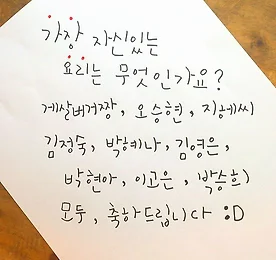 가장 자신있는
요리는 무엇인가요?
게살버거짱, 오승현, 지혜씨
김정숙, 박혜나, 김영은,
박현아, 이고은, 박승희
모두, 축하드립니다 :D